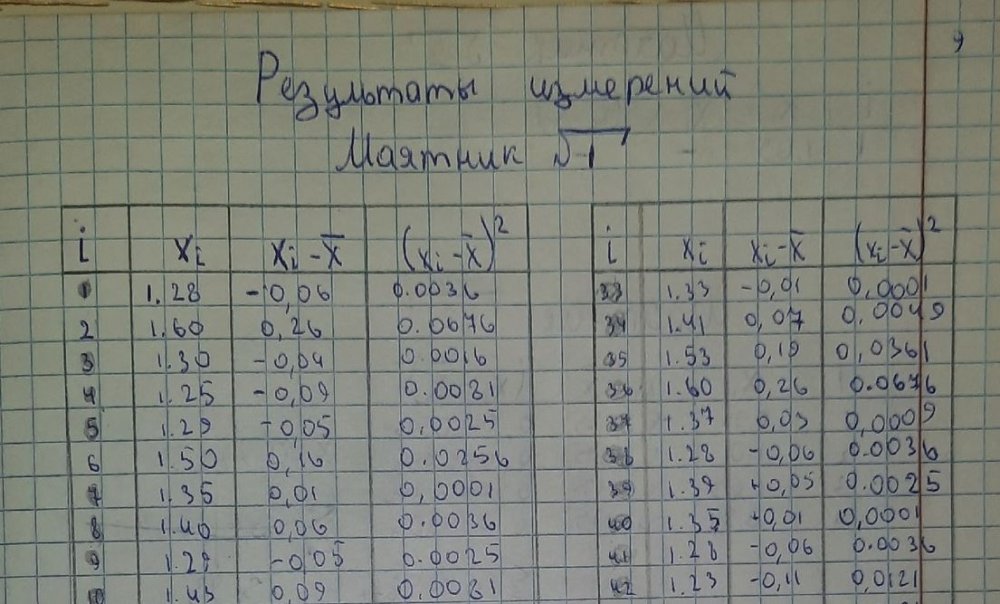 9
Результаты измерений
Маятник √1
i xᵢ xᵢ-x̄ (xᵢ-x̄)² i xᵢ xᵢ-x̄ (xᵢ-x̄)²
1 1.28 -0,06 0.0036 33 1.33 -0,01 0,0001
2 1.60 0,26 0.0676 34 1.41 0,07 0,0049
3 1.30 -0,04 0.0016 35 1.53 0,19 0,0361
4 1.25 -0,09 0.0081 36 1.60 0,26 0.0676
5 1.29 -0,05 0,0025 37 1.37 0,03 0,0009
6 1.50 0,16 0.0256 38 1.28 -0,06 0.0036
7 1.35 0,01 0,0001 39 1.39 +0,05 0.0025
8 1.40 0,06 0.0036 40 1.35 +0,01 0,0001
9 1.29 -0,05 0.0025 41 1.28 -0,06 0.0036
10 1.43 0,09 0.0081 42 1.23 -0,11 0,0121